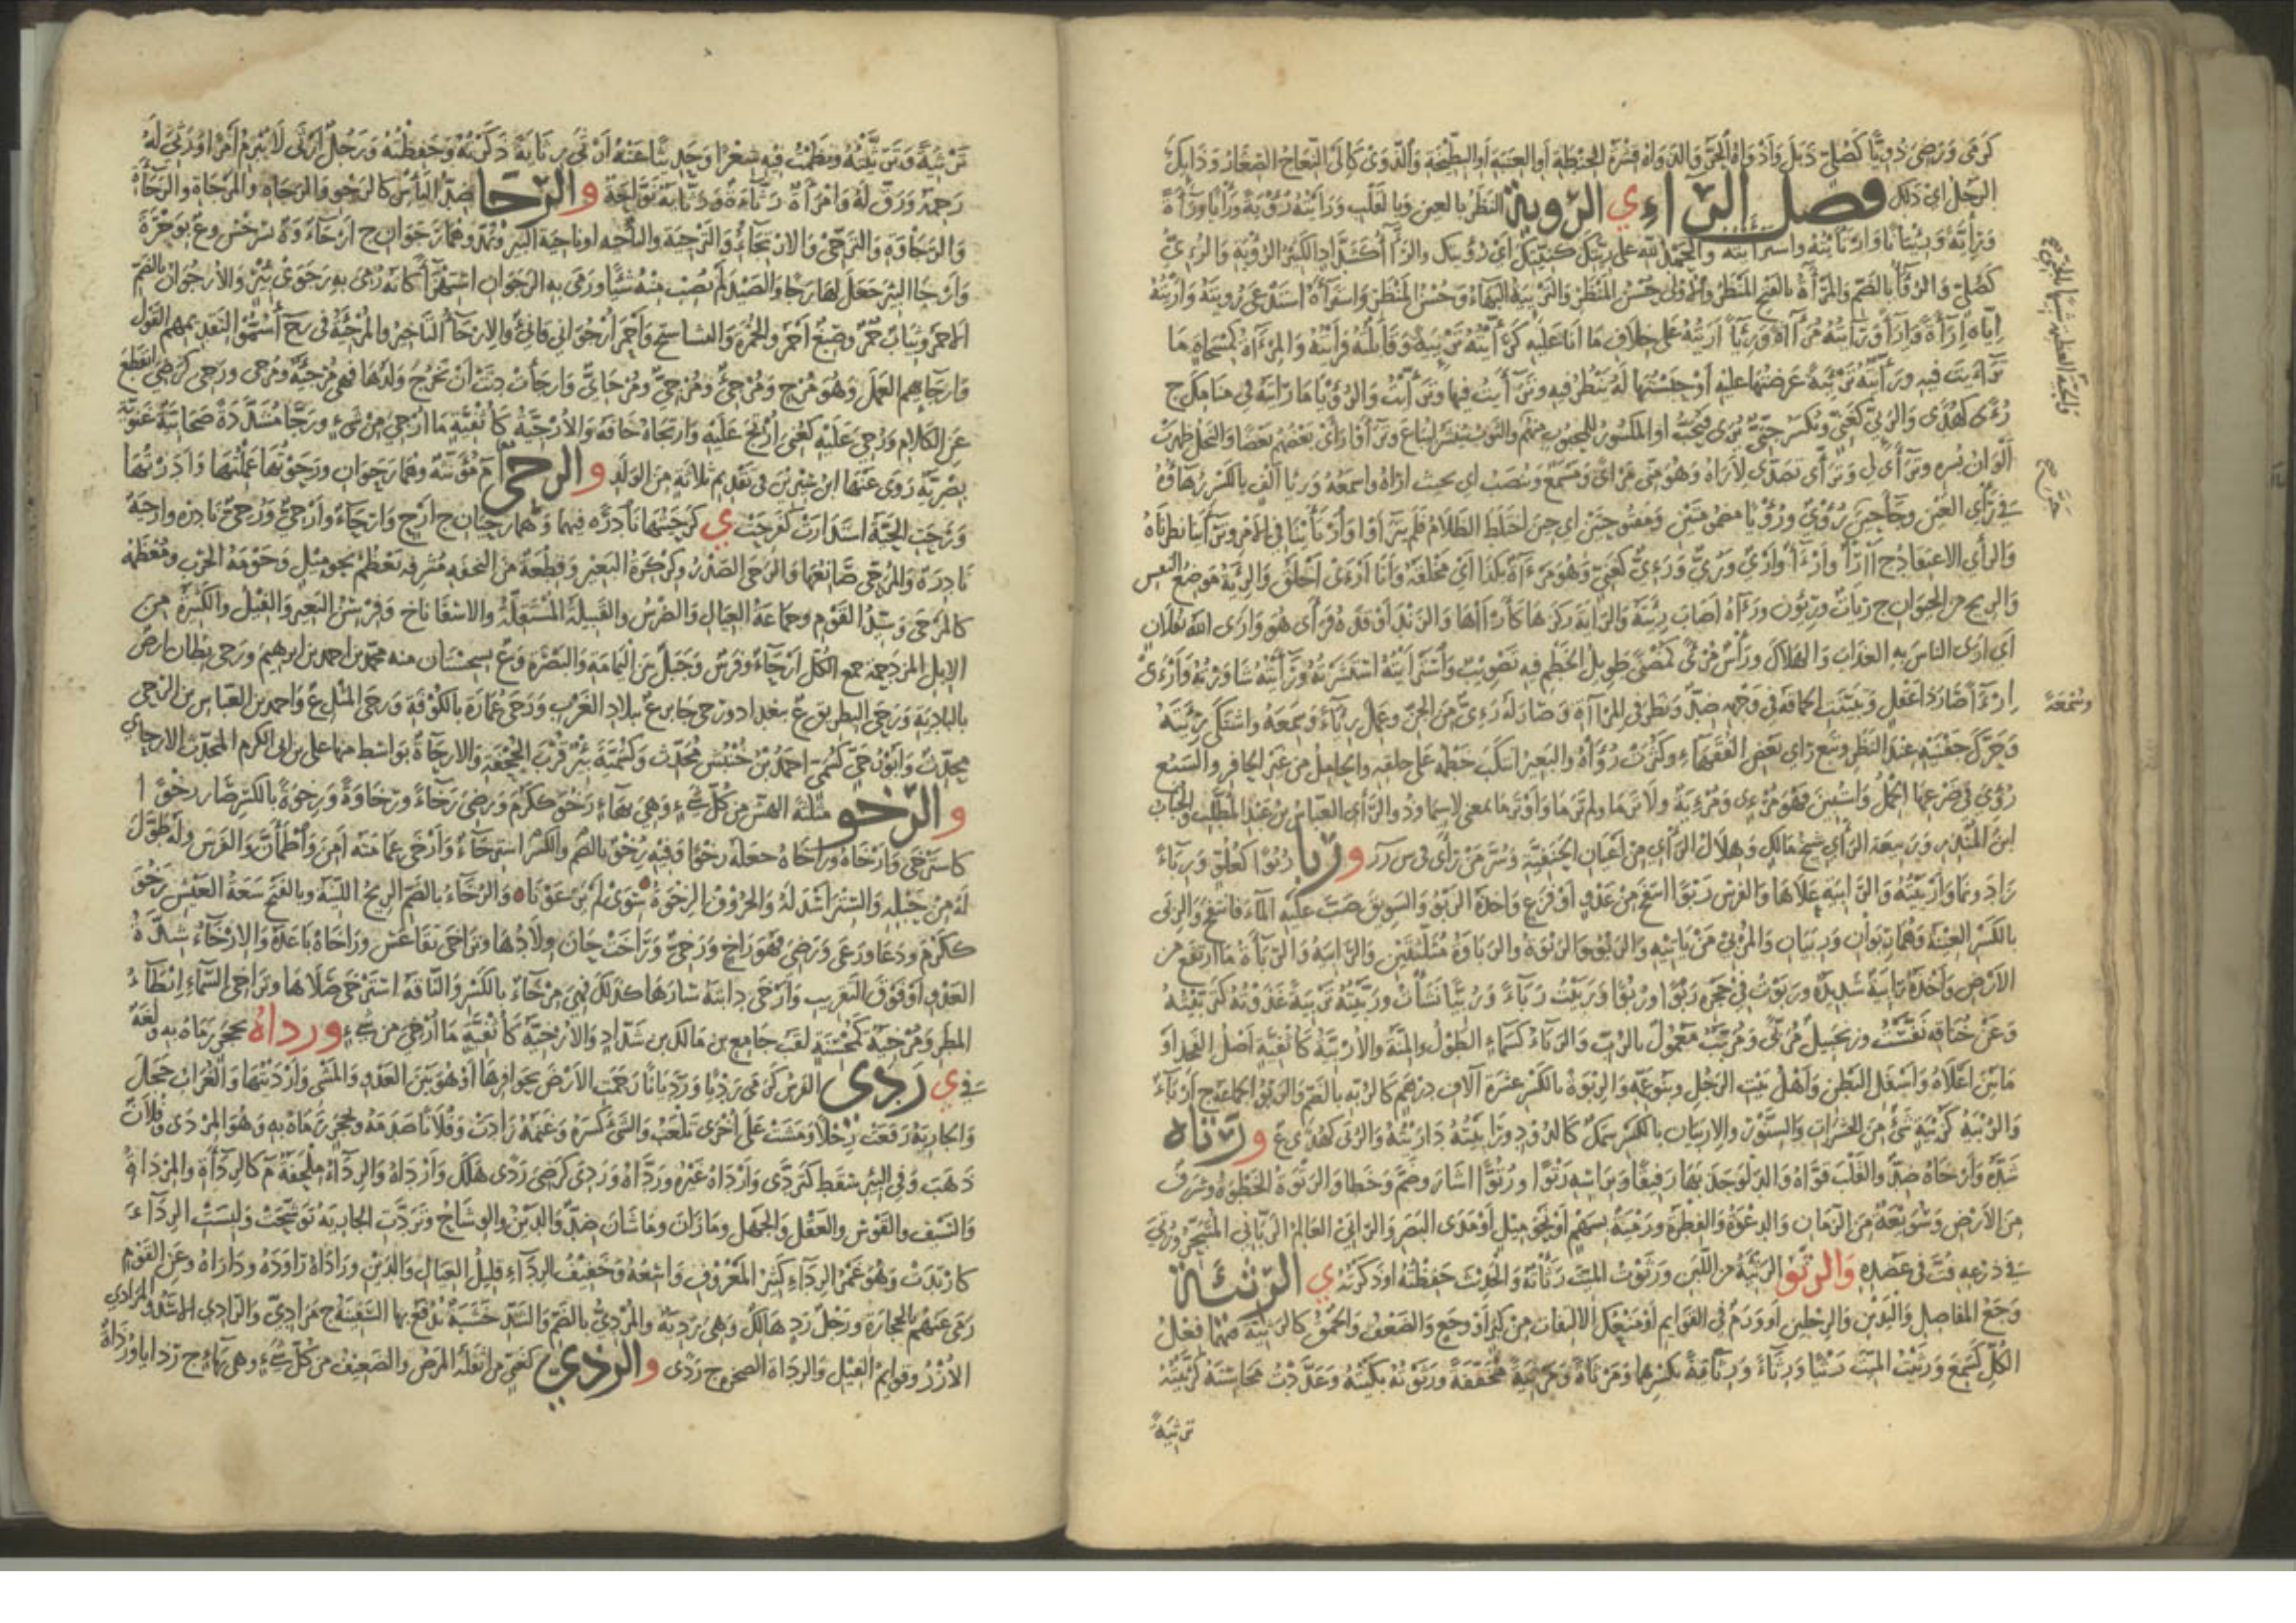 كرمى ورضى ذويا كصلى ذبل واذواه الحر والذواة قشرة الحنطة او العنبة او البطيخة والذوى كالى النعاج الصغار وذا بك
الرجل اى ذلك فصل الراء ي الروية النظر بالعين وبالقلب ورايته رؤية ورأيا وراءة
ورأية ورئيانا وارتأيته واسترأيته والحمد لله على ريتك كنيتك اى رؤيتك والرآء كشداد الكثير الرؤية والرئى
كصلى والرؤاء بالضم والمرآة بالفتح المنظر والاولى حسن المنظر والترئية البهاء وحسن المنظر واسترآه استدعى رويته واريته
اياه اراءة واراء وراأيته مراآة ورئاء اريته على خلاف ما انا عليه كرأيته ترئية وقابلته فرأيته والمرآة كمسحاة ما
تراأيت فيه ورأيته ترئية عرضتها عليه او حبستها له ينظر فيها وتراأيت فيها وترأيت والرؤيا ما رايته في منامك ج
رؤى كهدى والرئى كغنى ويكسر جنى يرى فيحب او المكسور للمحبوب منهم والثوب ينشر ليباع وتراأوا رأى بعضهم بعضا والنخل ظهرت
الوان بسره وتراأى لي وترأى تصدى لأراه وهو منى مرأى ومسمع وينصب اى بحيث اراه واسمعه ورئاء الف بالكسر زهاؤه
في رأي العين وجاء حين رؤى ورؤيا مضمومتين ومفتوحتين اى حين اختلط الظلام فلم يتراأوا وارتأينا في الامر وتراأيناه نظرناه
والرأي الاعتقاد ج آراء وأرآء وارى ورى ورئى كغنى وهو مرءاة بكذا اى مخلقة وانا ارأى اخلق والرئة موضع النفس
والريح من الحيوان ج رئات ورئون ورآه اصاب رئته والراية ركزها كأرآها والزند اوقده فرأى هو وارى الله بفلان
اى ارى الناس به العذاب والهلاك ورأس مرأى كمضنى طويل الخطم فيه تصويب واسترأيته استشرته ورأأيته شاورته وارأى
ارءاء صار ذا عقل وتبينت الحماقة في وجهه ضد ونظر في المرآة وصار له رئى من الجن وعمل رئاء وسمعة واشتكى رئته
وحرك جفنيه عند النظر وتبع رأى بعض الفقهاء وكثرت رؤاه والبعير انتكب خطمه على حلقه والحامل من غير الحافر والسبع
رؤى في ضرعها الحمل واستبين فهو مرءى ومرئية ولا ترما ولم ترما واوترما بمعنى لاسيما وذو الرأي العباس بن عبد المطلب والحباب
ابن المنذر وربيعة الرأي شيخ مالك وهلال الرأي من اعيان الحنفية وسر من رأى في س ر ر و ربا ربوا كعلو ورباء
زاد ونما واربيته والرابية علاها والفرس ربوا انتفخ من عدو او فزع واخذه الربو والسويق صب عليه الماء فانتفخ والربى
بالكسر العينة وهما ربوان وربيان والمربى من يأتيه والربو والربوة والرباوة مثلثتين والرابية والرباة ما ارتفع من
الارض واخذة رابية شديدة وربوت في حجره ربوا وربوا وربيت رباء وربيا نشأت وربيته تربية غذوته كتربيته
وعن خناقه نفست وزنجبيل مربى ومربب معمول بالرب والرباء كسماء الطول والمنة والاربية كأثفية اصل الفخذ او
ما بين اعلاه واسفل البطن واهل بيت الرجل وبنو عمه والربوة بالكسر عشرة آلاف درهم كالربة بالضم والربو الجماعة ج ارباء
والربية كزبية شئ من الحشرات والسنور والاربيان بالكسر سمك كالدود ورابيته داريته والربى كهدى ع و رتاه
شده وارخاه ضد والقلب قواه والدلو جذبها رفيقا وبرأسه رتوا ورتوا اشار وضم وخطا والرتوة الخطوة وشرف
من الارض وسويعة من الزمان والدعوة والفطرة ورمية بسهم او نحو ميل او مدى البصر والراتى العالم الربانى المتبحر ورتى
في ذرعه فت في عضده والرثو الرثية من اللبن ورثوت الميت رثأته والحديث حفظته او ذكرته ي الرثية
وجع المفاصل واليدين والرجلين او ورم في القوايم او منعك الالتفات من كبر او وجع والضعف والحمق كالرثية فيهما فعل
الكل كسمع ورثيت الميت رثيا ورثاء ورثاية بكسرهما ومرثاة ومرثية مخففة ورثوته بكيته وعددت محاسنه كرثيته
ترثية
وسمعة
ترثية وترثيته ونظمت فيه شعرا وحديثا عنه ارثى رثاية ذكرته وحفظته ورجل ارثى لا يبرم امرا ورثى له
رحمه ورق له وامرأة رثاءة ورثاية نواحة و الرجا ضد اليأس كالرجو والرجاة والمرجاة والرجاءة
والرجاوة والترجى والارتجاء والترجية والناحية او ناحية البئر ويمد وهما رجوان ج ارجاء وة بسرخس وع بوجرة
وارجا البئر جعل لها رجا والصيد لم يصب منه شيئا ورمى به الرجوان استهزأ كانه رمى به رجوى بئر والارجوان بالضم
الاحمر وثياب حمر وصبغ احمر والحمرة والنشاستج واحمر ارجواني قانئ والارجاء التأخير والمرجئة في رج أ سموا لتقديمهم القول
وارجائهم العمل وهو مرج ومرجى ومرجى ومرجائى وارجأت دنت ان تخرج ولدها فهى مرجئة ومرجى ورجى كرضى انقطع
عن الكلام ورجى عليه كعنى ارتج عليه وارتجاه خافه والارجية كأثفية ما ارجئ من شئ ورجا مشددة صحابية غنوية
بصرية روى عنها ابن سيرين في تقديم ثلاثة من الولد و الرحى م مؤنثة وهما رحوان ورحوتها عملتها وادرتها
ورحت الحية استدارت كترحت ي كرحيتها نادرة فيهما وهما رحيان ج ارح وارحاء وارحى ورحى نادرة وارحية
نادرة والمرحى صانعها والرحى الصدر وكركرة البعير وقطعة من النجفة مشرفة تعظم نحو ميل وحومة الحرب ومعظمه
كالمرحى وسيد القوم وجماعة العيال والضرس والقبيلة المستقلة والاسفاناخ وفرسن البعير والفيل والكثيرة من
الابل المزدحمة جمع الكل ارحاء وفرس وجبل بين اليمامة والبصرة وع بسجستان منه محمد بن احمد بن ابرهيم ورحى بطان ارض
بالبادية ورحى البطريق ع ببغداد ورحى جابر ع ببلاد العرب ورحى عمارة بالكوفة ورحى المثل ع واحمد بن العباس بن الرحى
محدث وابو رحى كسمى احمد بن خنبش محدث وكسمية بئر قرب الجحفة والارحاءة بواسط منها علي بن ابى الكرم المحدث الارحاى
و الرخو مثلثة الهش من كل شئ وهى بهاء رخو ككرم ورضى رخاء ورخاوة ورخوة بالكسر صار رخوا
كاسترخى وارخاه وراخاه جعله رخوا وفيه رخوة بالضم والكسر استرخاء وارخى عمامته امن واطمأن والفرس وله طول
له من حبله والستر اسدله والحروف الرخوة سوى لم يرعونا والرخاء بالضم الريح اللينة وبالفتح سعة العيش رخو
ككرم ودعا ورعى ورضى فهو راخ ورخى وراخت حان ولادها وتراخى تقاعس وراخاه باعده والارخاء شدة
العدو او فوق التقريب وارخى دابته سارها كذلك فهى مرخاء بالكسر والناقة استرخى صلاها وتراخى السماء ابطاء
المطر ومرخية كمحسنة لقب جامع بن مالك بن شداد والارخية كأثفية ما ارخى من شئ و رداه بحجر رماه به ولغة
في ي ردى الفرس كرمى رديا ورديانا رجمت الارض بحوافرها او هو بين العدو والمشى وارديتها والغراب حجل
والجارية رفعت رجلا ومشت على اخرى تلعب والشئ كسره وغنمه زادت وفلانا صدمه وبحجر رماه به وهو المردى وفلان
ذهب وفي البئر سقط كتردى وارداه غيره ورداه وردى كرضى ردى هلك وارداه والرداء ملحفة م كالرداءة والمرداة
والسيف والقوس والعقل والجهل وما زان وما شان ضد والدين والوشاح وتردت الجارية توشحت ولبست الرداء
كارتدت وهو غمر الرداء كثير المعروف واسعه وخفيف الرداء قليل العيال والدين وراداه راوده وداراه وعن القوم
رمى عنهم بالحجارة ورجل رد هالك وهى ردية والمردى بالضم والشد خشبة تدفع بها السفينة ج مرادى والرادى الاسد والمرادى
الازر وقوايم الفيل والرداة الصخرة ج ردى و الرذي كغنى من اثقله المرض والضعيف من كل شئ وهى بهاء ج رذايا ورذاة